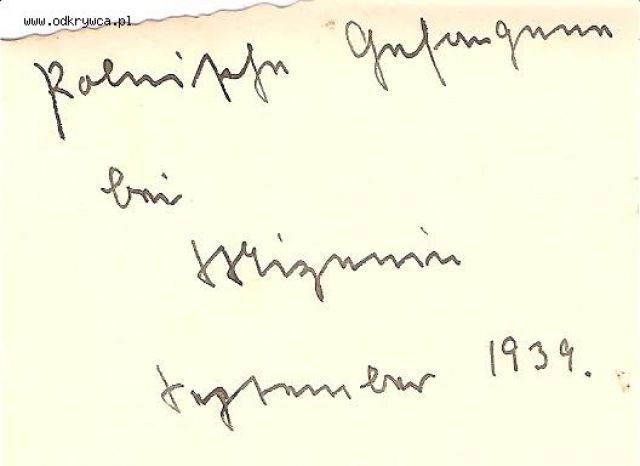 www.odkrywca.pl
Polnische Gefangene
bei
September 1939.